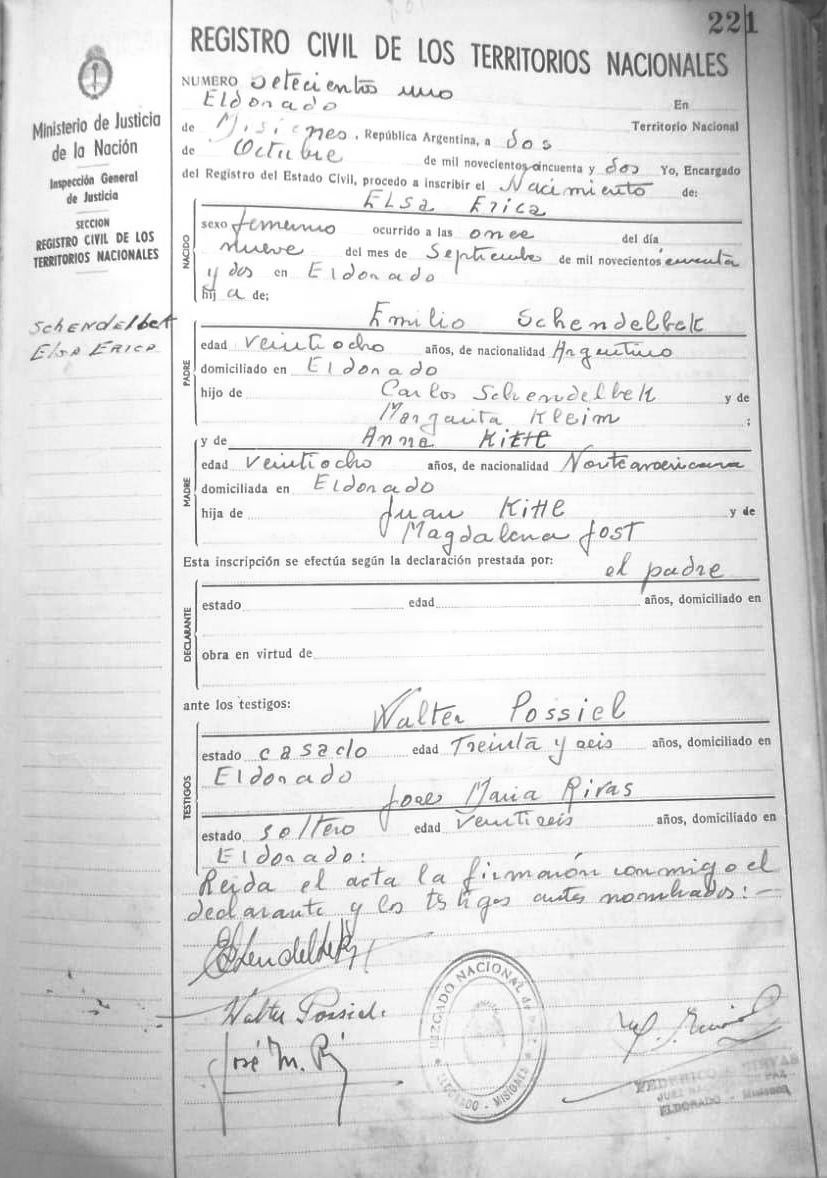 221
REGISTRO CIVIL DE LOS TERRITORIOS NACIONALES
Ministerio de Justicia
de la Nación
Inspección General
de Justicia
SECCION
REGISTRO CIVIL DE LOS
TERRITORIOS NACIONALES
Schendelbek
Elsa Erica
NUMERO Setecientos uno En
Eldorado Territorio Nacional
de Misiones, República Argentina, a dos
de Octubre de mil novecientos cincuenta y dos Yo, Encargado
del Registro del Estado Civil, procedo a inscribir el Nacimiento de:
Elsa Erica
NACIDO
sexo femenino ocurrido a las once del día
nueve del mes de Septiembre de mil novecientos cincuenta
y dos en Eldorado
hij a de;
Emilio Schendelbek
PADRE
edad veintiocho años, de nacionalidad Argentino
domiciliado en Eldorado
hijo de Carlos Schendelbek y de
Margarita Kleim ;
y de Anna Kittl
MADRE
edad veintiocho años, de nacionalidad Norteamericana
domiciliada en Eldorado
hija de Juan Kittl y de
Magdalena Jost
Esta inscripción se efectúa según la declaración prestada por: el padre
DECLARANTE
estado edad años, domiciliado en
obra en virtud de
ante los testigos: Walter Possiel
TESTIGOS
estado casado edad Treinta y seis años, domiciliado en
Eldorado
Jose Maria Rivas
estado soltero edad veintiseis años, domiciliado en
Eldorado:
Leida el acta la firmarón conmigo el
declarante y los testigos antes nombrados:—
Walter Possiel
José M. Ri
JUZGADO NACIONAL de PAZ
ELDORADO - MISIONES
FEDERICO
JUEZ DE PAZ
ELDORADO - Misiones